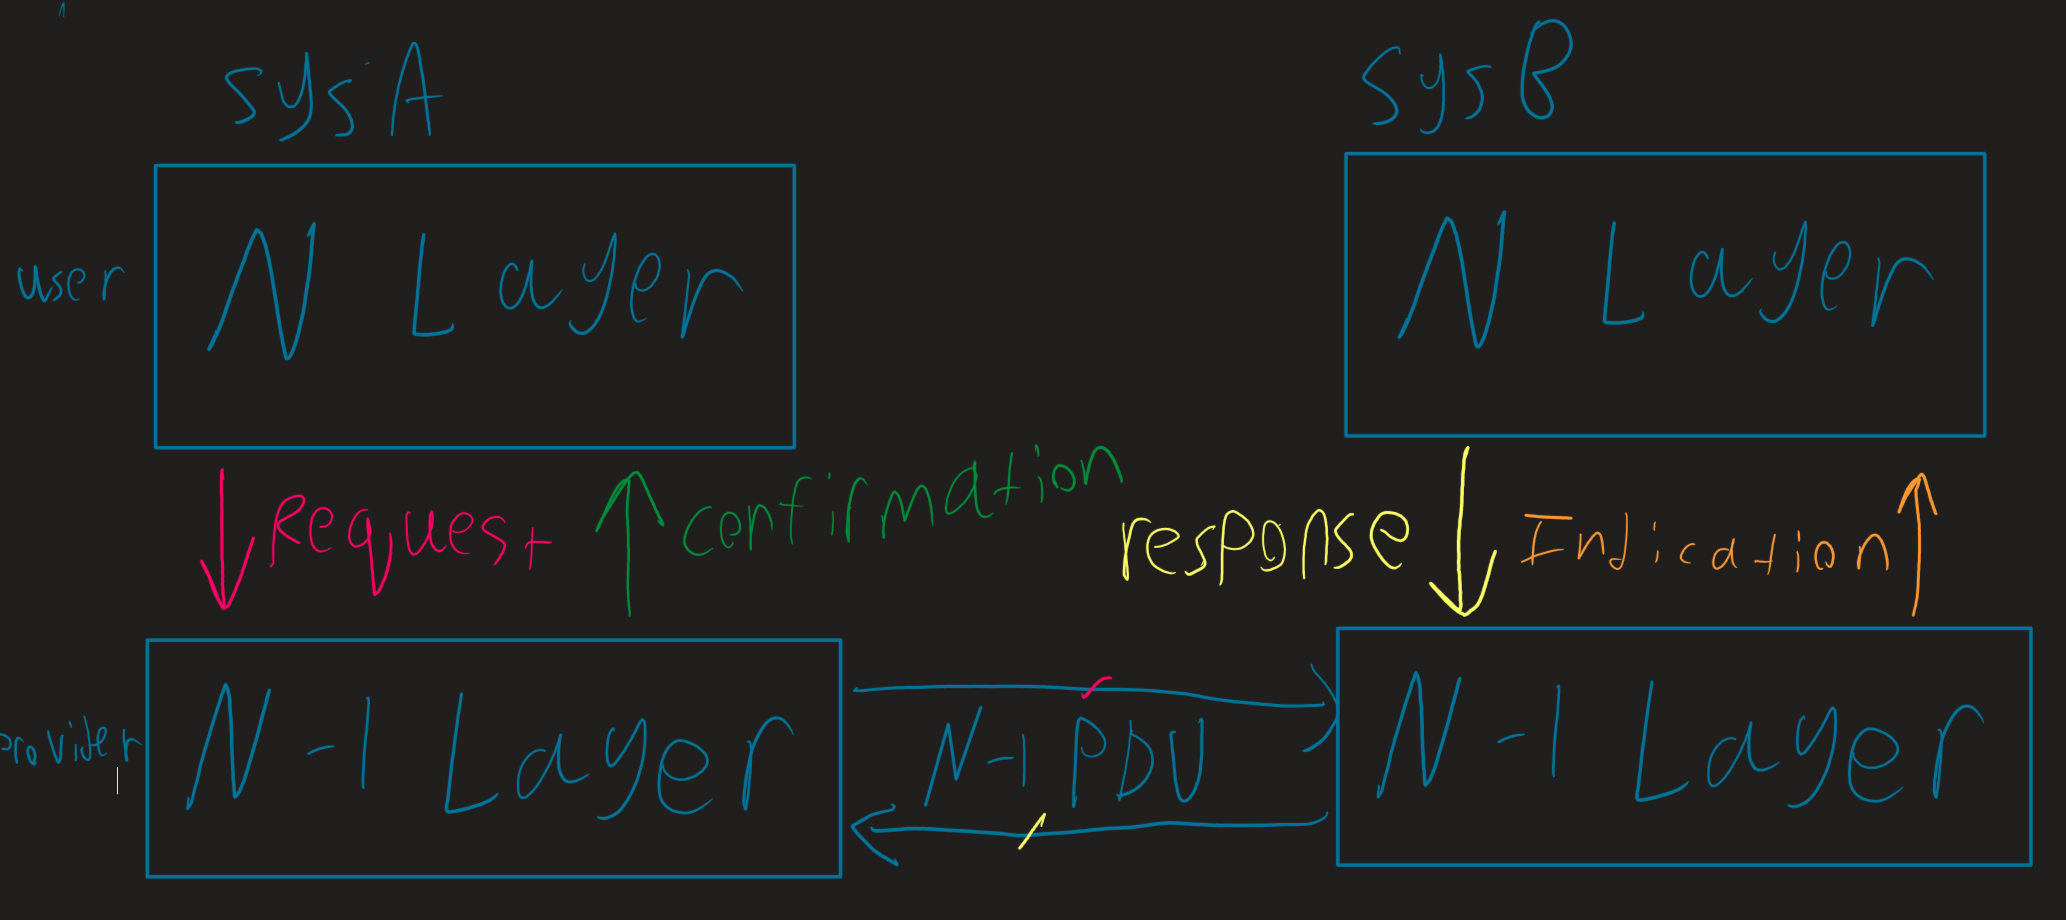 sysA
sysB
user
N Layer
N Layer
Request
confirmation
response
Indication
Provider
N-1 Layer
N-1 PDU
N-1 Layer